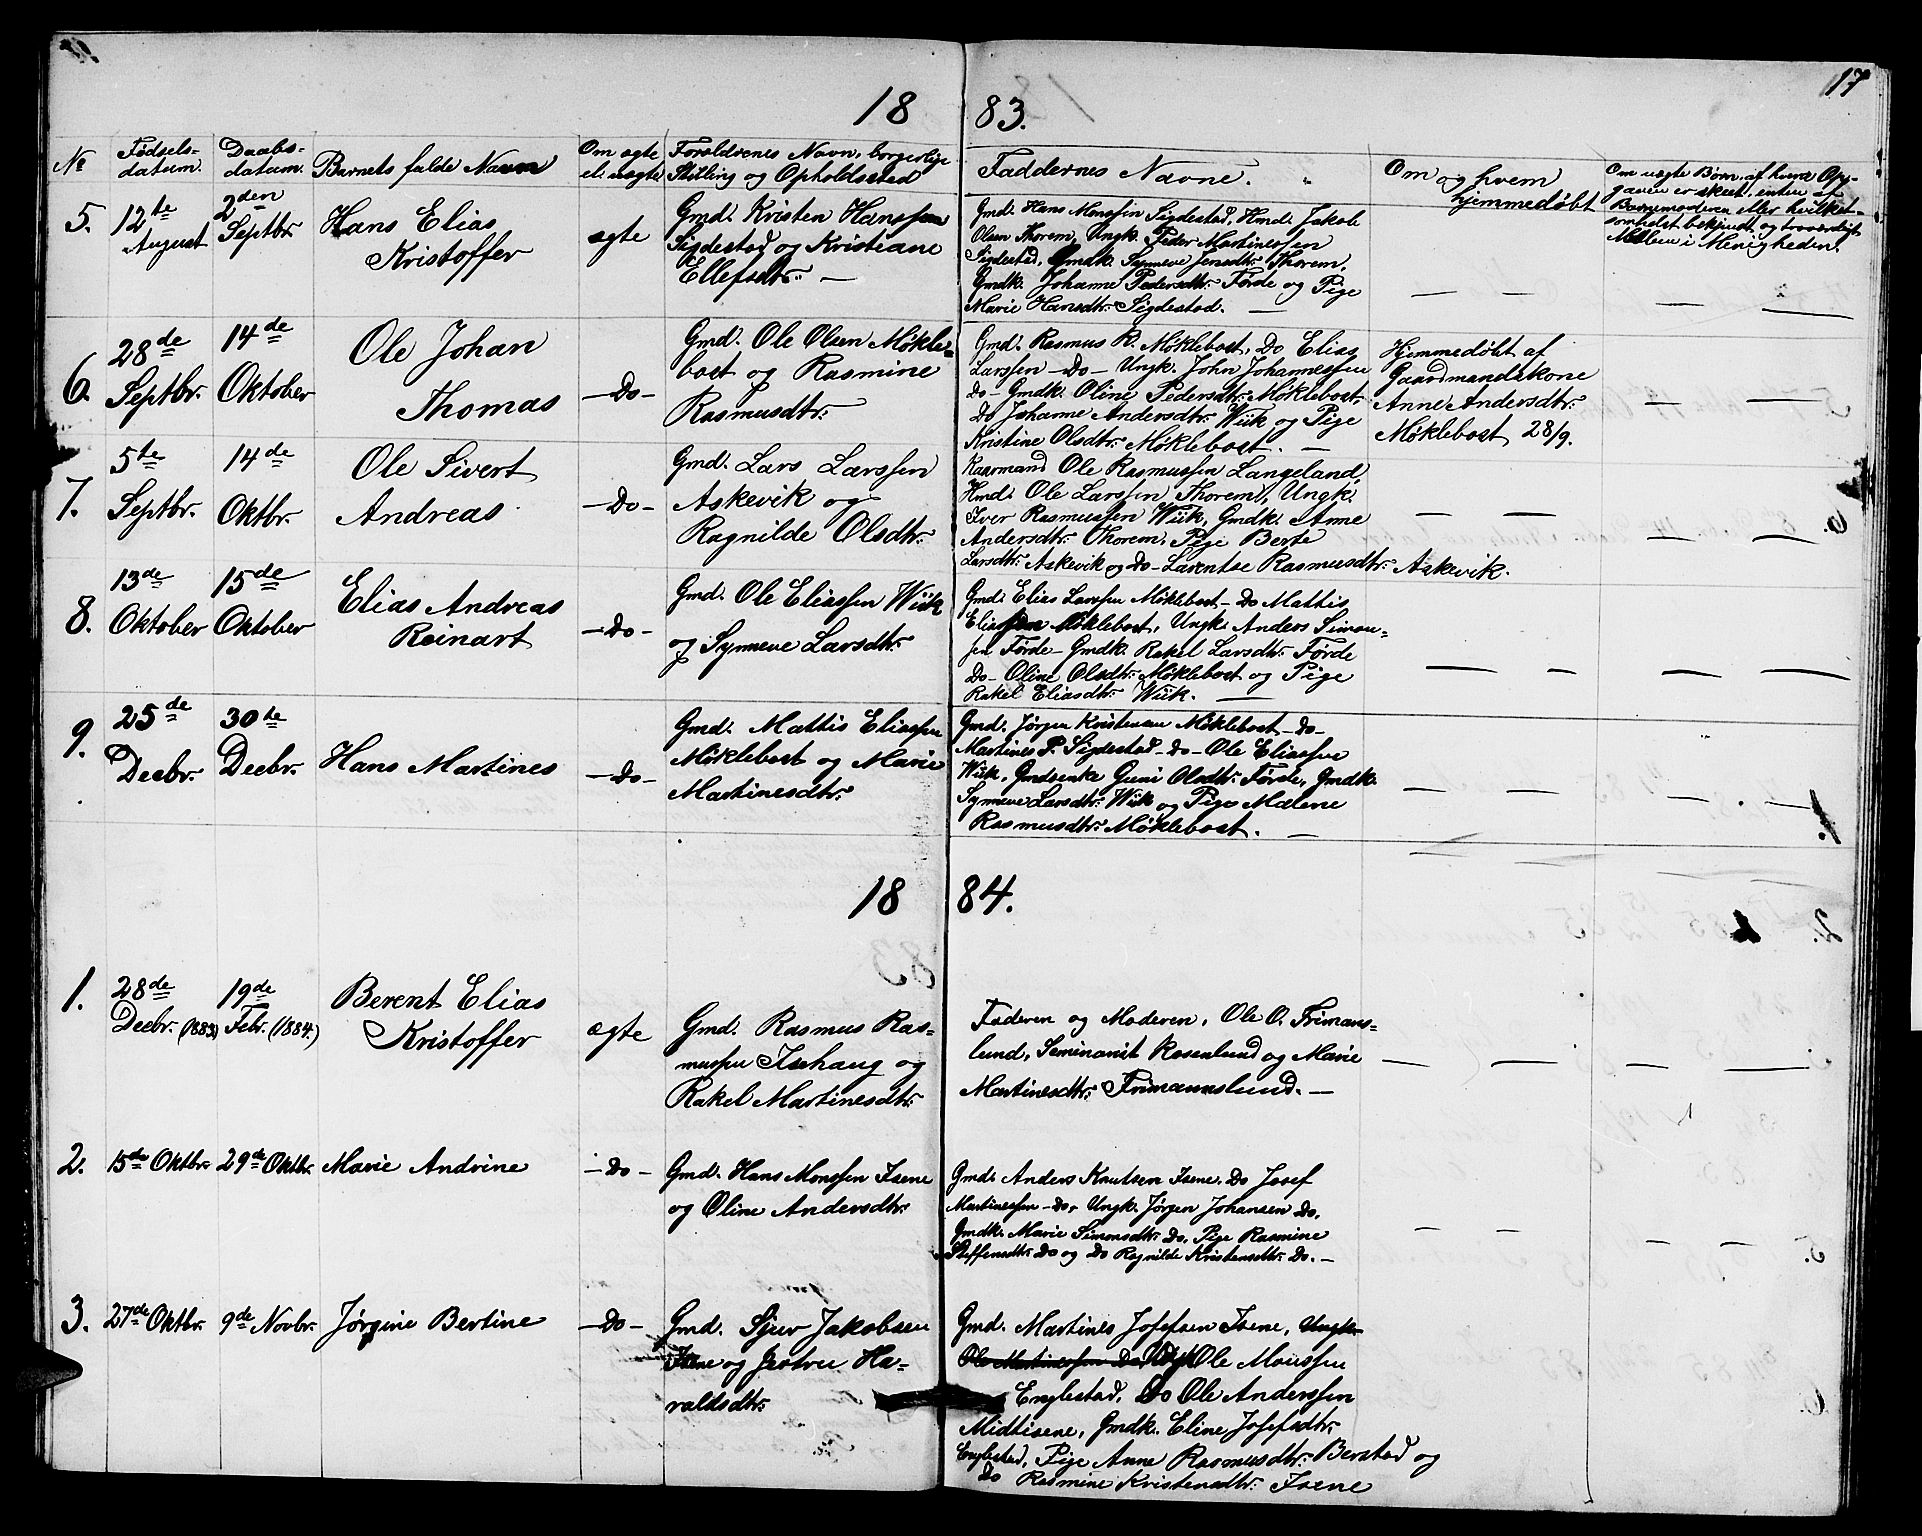 17
18 83.
No
Fødsels-
datum.
Daabs-
datum.
Barnets fulde Navn
Om ægte
el. uægte
Forældrenes Navn, borgerlige
Stilling og Opholdssted
Faddernes Navne.
Om og hvem
hjemmedøbt
Om uægte Børn, af hvem Opg-
gaven er skeet, enten af
Barnemoderen eller hvilket-
somhelst bekjendt og troværdigt
Medlem i Menigheden.
5.
12te
August
2den
Septbr.
Hans Elias
Kristoffer
ægte
Gmd. Kristen Hanssen
Sigdestad og Kristiane
Ellefsdtr. —
Gmd. Hans Monssen Sigdestad, Hmd. Jakob
Olsen Thorem, Ungk. Peder Martinessen
Sigdestad, Gmdk. Synneve Jensdtr. Thorem,
Gmdk. Johanne Pedersdtr. Førde og Pige
Marie Hansdtr. Sigdestad. —
— — — —
6.
28de
Septbr.
14de
Oktober
Ole Johan
Thomas
—Do—
Gmd. Ole Olsen Møkle-
bost og Rasmine
Rasmusdtr.
Gmd. Rasmus R. Møklebost, Do Elias
Larssen —Do— Ungk. John Johannessen
Do— Gmdk. Oline Pedersdtr. Møklebost,
Do Johanne Andersdtr. Wiik og Pige
Kristine Olsdtr. Møklebost. —
Hjemmedøbt af
Gaardmandskone
Anne Andersdtr.
Møklebost 28/9.
— —
7.
5te
Septbr.
14de
Oktbr.
Ole Sivert
Andreas
—Do—
Gmd. Lars Larssen
Askevik og
Ragnilde Olsdtr.
Kaarmand Ole Rasmussen Langeland,
Hmd. Ole Larssen Thorem, Ungk.
Iver Rasmussen Wiik, Gmdk. Anne
Andersdtr. Thorem, Pige Berte
Larsdtr. Askevik og Do— Larentse Rasmusdtr. Askevik.
— — — —
8.
13de
Oktober
15de
Oktober
Elias Andreas
Reinart
—Do—
Gmd. Ole Eliassen Wiik
og Synneve Larsdtr.
Gmd. Elias Larssen Møklebost— Do Mattis
Eliassen Møklebost, Ungk. Anders Simon-
sen Førde— Gmdk. Rakel Larsdtr. Førde
Do— Oline Olsdtr. Møklebost og Pige
Rakel Eliasdtr. Wiik. —
— — — —
9.
25de
Decbr.
30te
Decbr.
Hans Martines
—Do—
Gmd. Mattis Eliassen
Møklebost og Marie
Martinesdtr.
Gmd. Jørgen Kristensen Møklebost —Do—
Martines P. Sigdestad —Do— Ole Eliassen
Wiik, Gmdsenke Guni Olsdtr. Førde, Gmdk.
Synneve Larsdtr. Wiik og Pige Malene
Rasmusdtr. Møklebost. —
— — — —
18 84.
1.
28de
Decbr. (1883)
19de
Febr. (1884)
Berent Elias
Kristoffer
ægte
Gmd. Rasmus Ras-
mussen Isehaug og
Rakel Martinesdtr.
Faderen og Moderen, Ole O. Frimans-
lund, Seminarist Rosenlund og Marie
Martinesdtr. Frimannslund. —
— — — —
2.
15de Oktbr.
29de Oktbr.
Marie Andrine
—Do—
Gmd. Hans Monssen Isene
og Oline Andersdtr.
Gmd. Anders Knutsen Isene, Do Josef
Martinessen —Do, Ungk. Jørgen Johansen Do,
Gmdk. Marie Simonsdtr. Do, Pige Rasmine
Steffensdtr. Do og Do Ragnilde Kristensdtr. Do. —
— — — —
3.
27de Oktbr.
9de Novbr.
Jørgine Bertine
—Do—
Gmd. Sjur Jakobsen
Isene og Jertru Ha-
raldsdtr.
Gmd. Martines Josefsen Isene, Ungk.
Ole Martinessen Do, Ungk Ole Monssen
Englestad, Do Ole Anderssen
Midtisene, Gmdk. Eline Josefsdtr.
Englestad, Pige Anne Rasmusdtr. Berstad og
Do Rasmine Kristensdtr. Isene